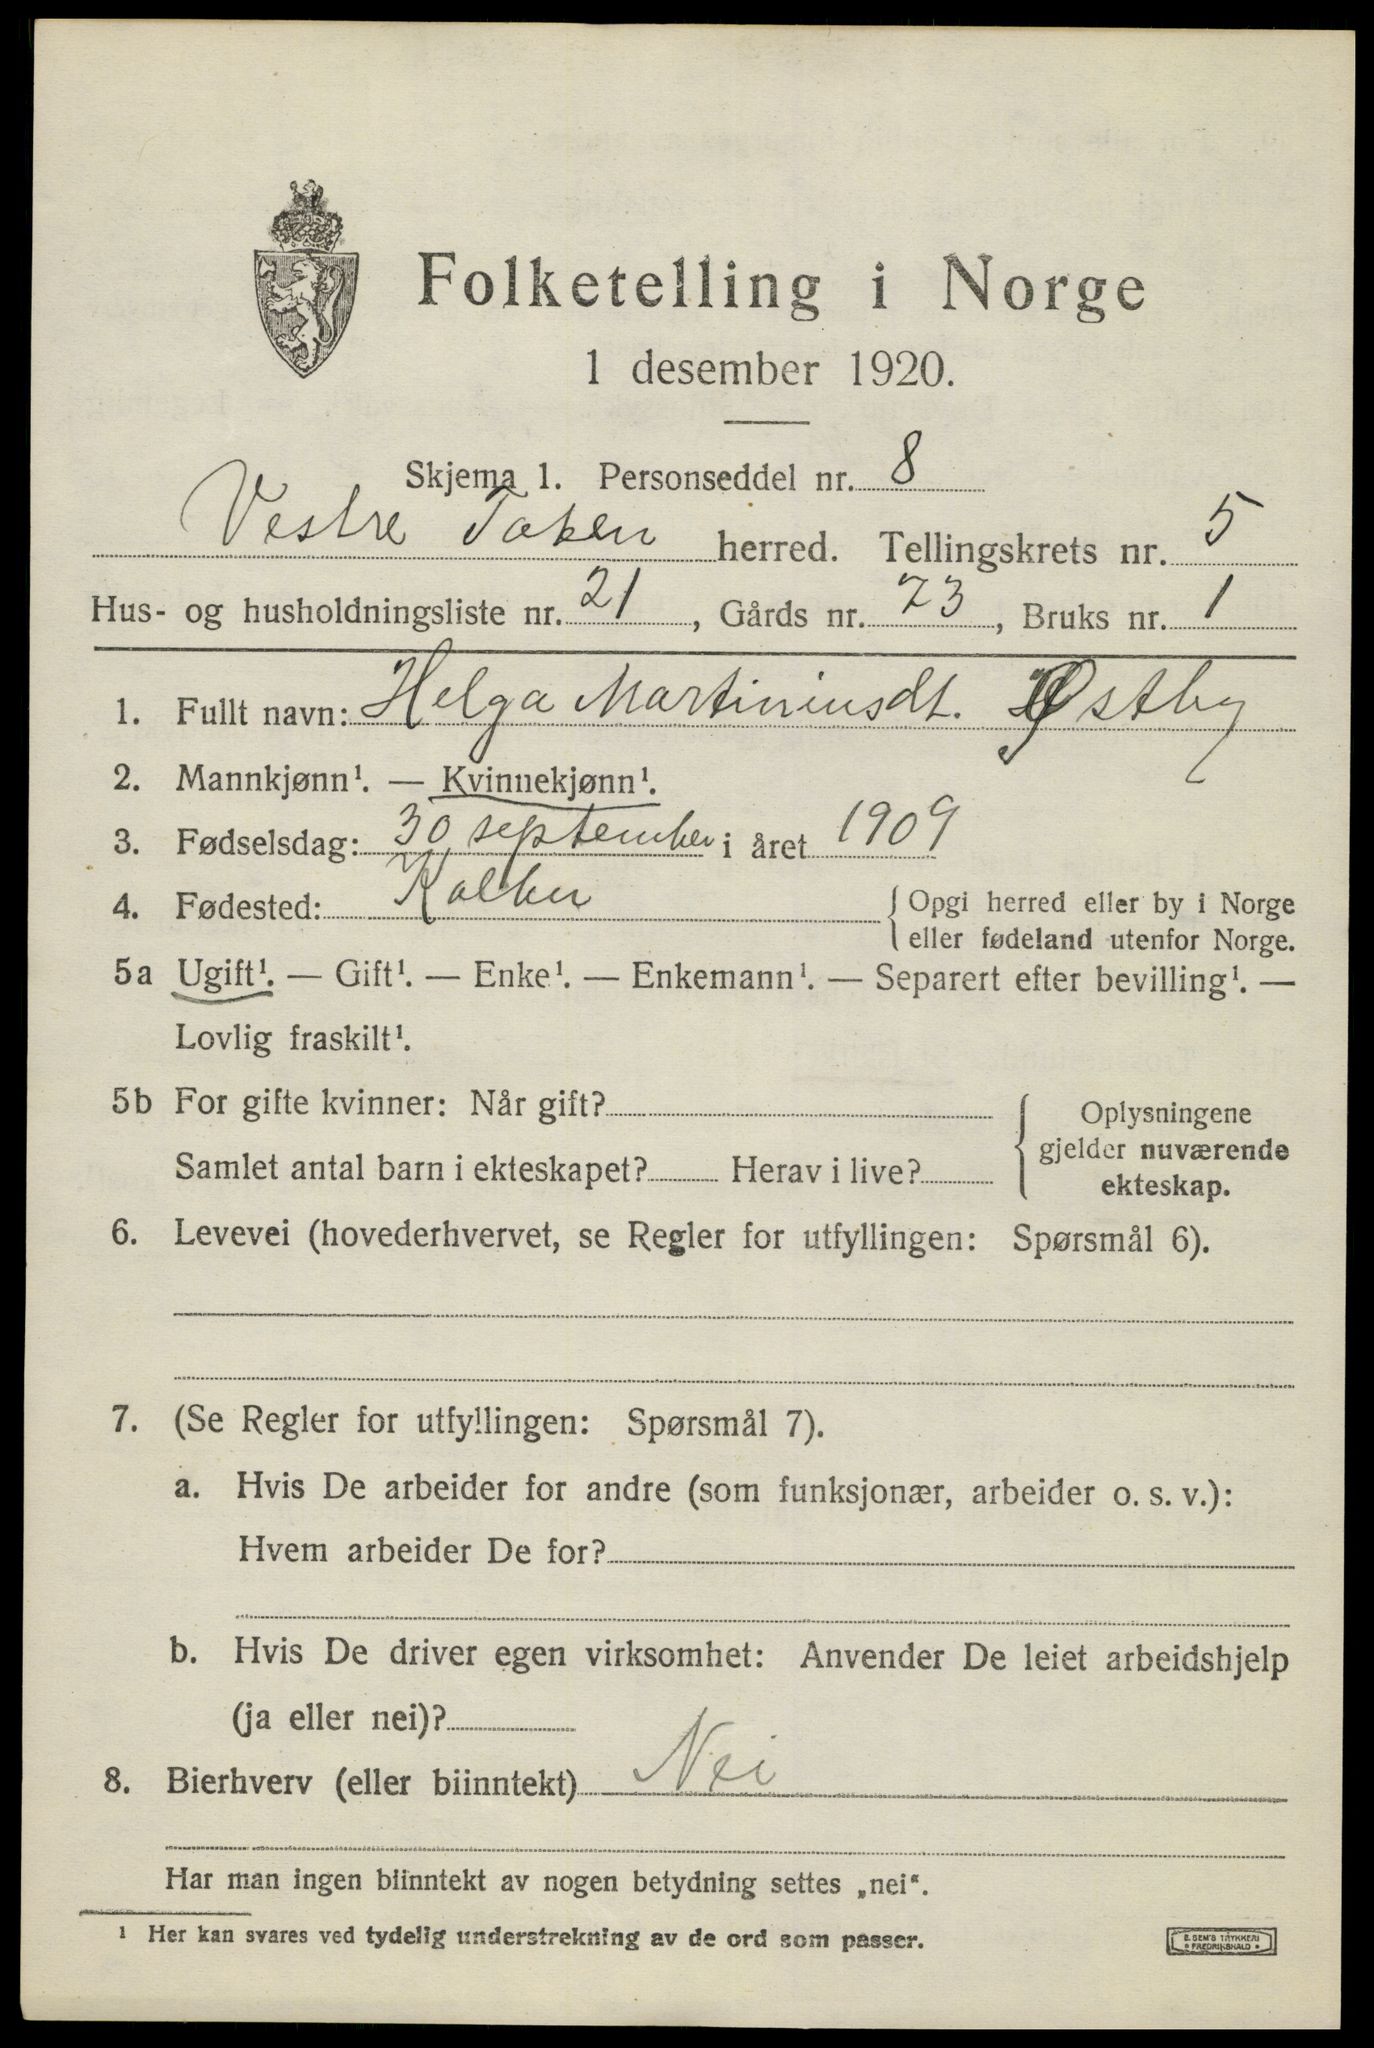 Folketelling i Norge
1 desember 1920.
Skjema 1. Personseddel nr. 8
Vestre Toten herred. Tellingskrets nr. 5
Hus- og husholdningsliste nr. 21, Gårds nr. 73, Bruks nr. 1
1. Fullt navn: Helga Martiniusdt. Østby
2. Mannkjønn¹. — Kvinnekjønn¹.
3. Fødselsdag: 30 september i året 1909
4. Fødested: Kolbu {Opgi herred eller by i Norge
eller fødeland utenfor Norge.
5a Ugift¹. — Gift¹. — Enke¹. — Enkemann¹. — Separert efter bevilling¹. —
Lovlig fraskilt¹.
5b For gifte kvinner: Når gift? { Oplysningene
gjelder nuværende
Samlet antal barn i ekteskapet? Herav i live?
ekteskap.
6. Levevei (hovederhvervet, se Regler for utfyllingen: Spørsmål 6).
7. (Se Regler for utfyllingen: Spørsmål 7).
a. Hvis De arbeider for andre (som funksjonær, arbeider o. s. v.):
Hvem arbeider De for?
b. Hvis De driver egen virksomhet: Anvender De leiet arbeidshjelp
(ja eller nei)?
8. Bierhverv (eller biinntekt) Nei
Har man ingen biinntekt av nogen betydning settes „nei“.
¹ Her kan svares ved tydelig understrekning av de ord som passer.
E. SEM'S TRYKKERI
* FREDRIKSHALD *